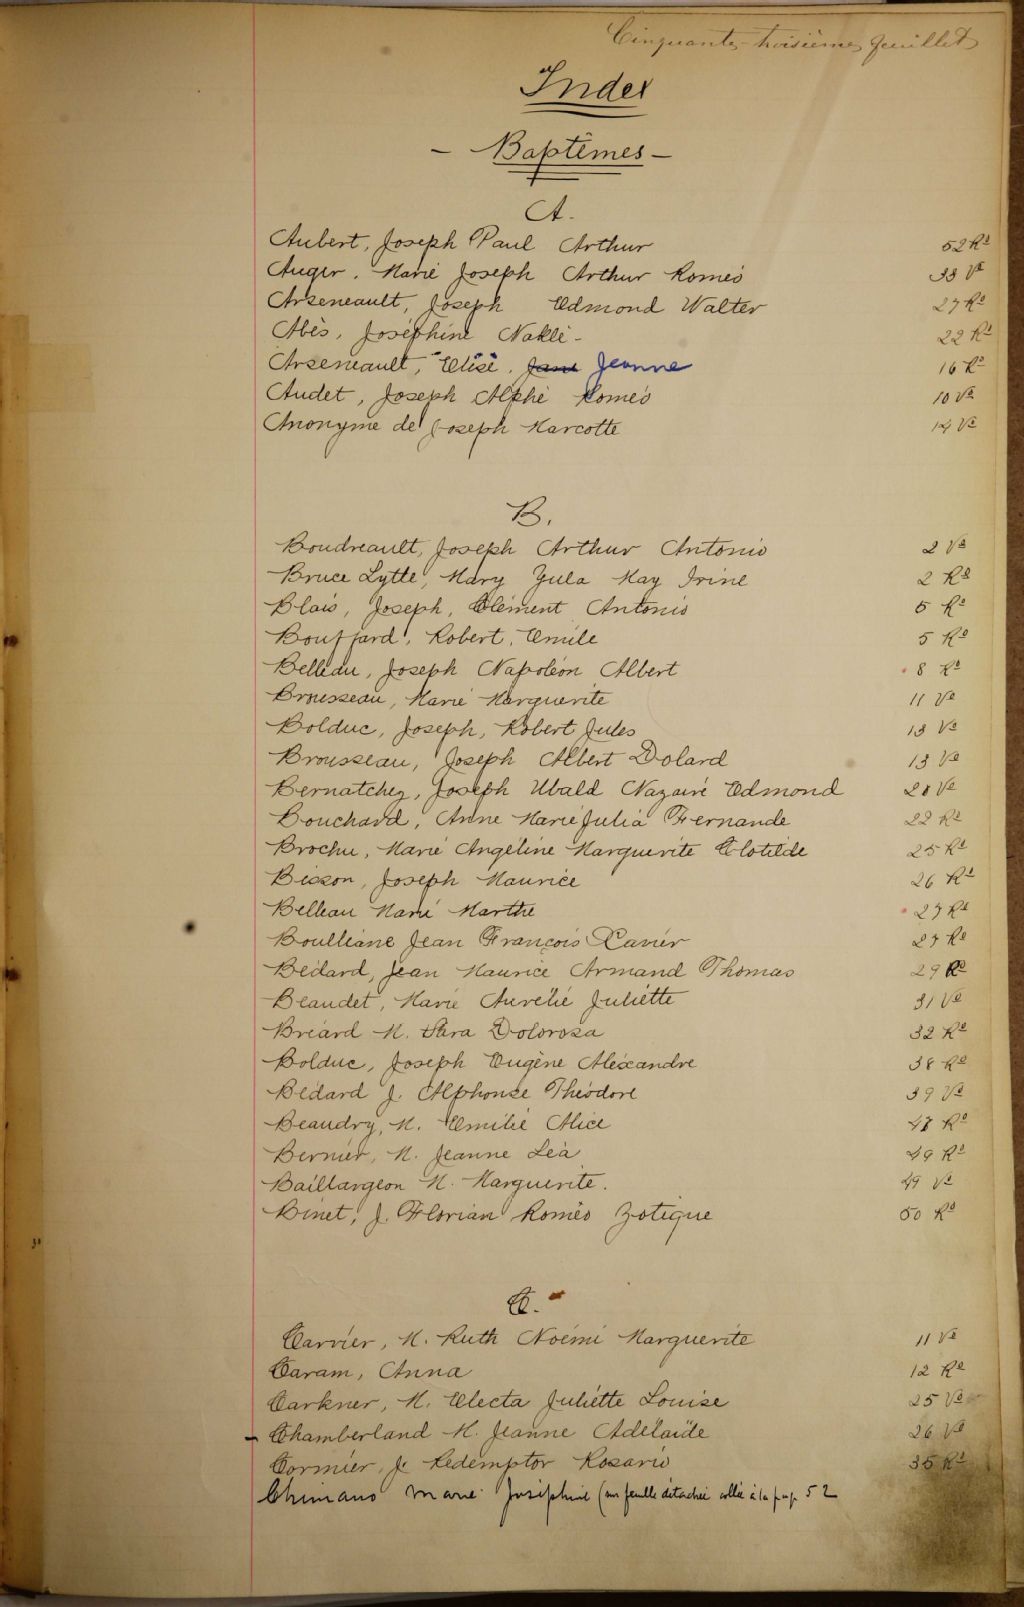 Cinquante-troisième feuillet
Index
- Baptêmes -
A.
Aubert, Joseph Paul Arthur 52 Ro
Auger, Marie Joseph Arthur Roméo 33 Vo
Arseneault, Joseph Edmond Walter 27 Ro
Abès, Joséphine Naklé - 22 Ro
Arseneault, Elise, Jane Jeanne 16 Ro
Audet, Joseph Alphé Roméo 10 Vo
Anonyme de Joseph Marcotte 14 Vo
B.
Boudreault, Joseph Arthur Antonio 2 Vo
Bruce Lytle, Mary Zula May Irine 2 Ro
Blais, Joseph, Clément Antonio 5 Ro
Bouffard, Robert, Emile 5 Ro
Belleau, Joseph Napoléon Albert 8 Ro
Brousseau, Marie Marguerite 11 Vo
Bolduc, Joseph, Robert Jules 13 Vo
Brousseau, Joseph Albert Dolard 13 Vo
Bernatchez, Joseph Ubald Nazaire Edmond Vo
Bouchard, Anne Marie Julia Fernande 22 Ro
Brochu, Marie Angéline Marguerite Clotilde 25 Ro
Bisson, Joseph Maurice 26 Ro
Belleau Marie Marthe 27 Ro
Boulliane Jean François Xavier 27 Ro
Bédard, Jean Maurice Armand Thomas 29 Ro
Beaudet, Marie Aurélie Juliette 31 Vo
Bréard M. Sara Dolorosa 32 Ro
Bolduc, Joseph Eugène Aléxandre 38 Ro
Bédard J. Alphonse Théodore 39 Vo
Beaudry, M. Emilie Alice Ro
Bernier, M. Jeanne Léa 49 Ro
Baillargeon M. Marguerite. 49 Vo
Binet, J. Florian Roméo Zotique 50 Ro
C.
Carrier, M. Ruth Noémi Marguerite 11 Vo
Caram, Anna 12 Ro
Carkner, M. Electa Juliette Louise 25 Vo
- Chamberland M. Jeanne Adélaïde 26 Vo
Cormier, J. Rédemptor Rosario 35 Ro
Marie Joséphine (sur feuille détachée collée à la page 52